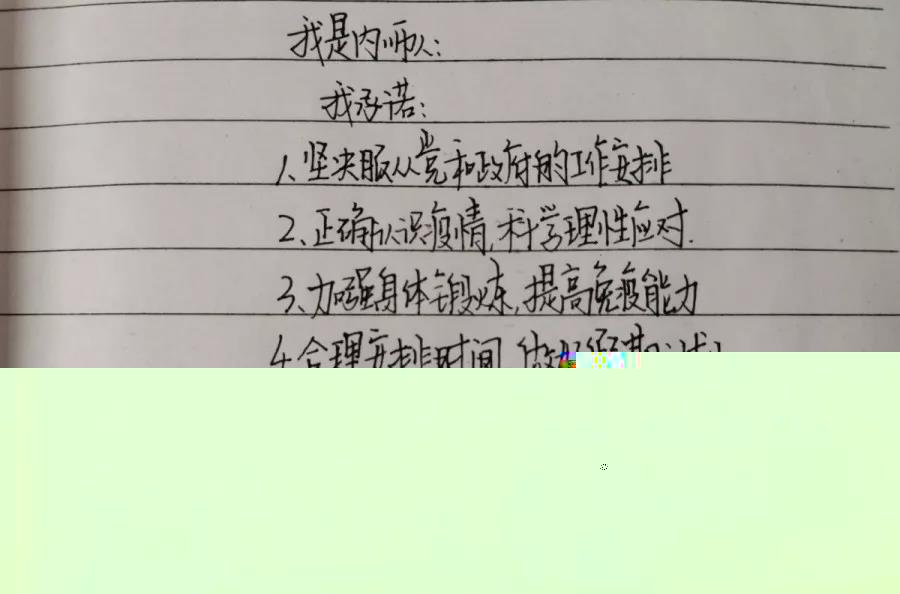 我是内师人:
我承诺:
1、坚决服从党和政府的工作安排
2、正确认识疫情,科学理性应对.
3、加强身体锻炼,提高免疫能力
4.合理安排时间